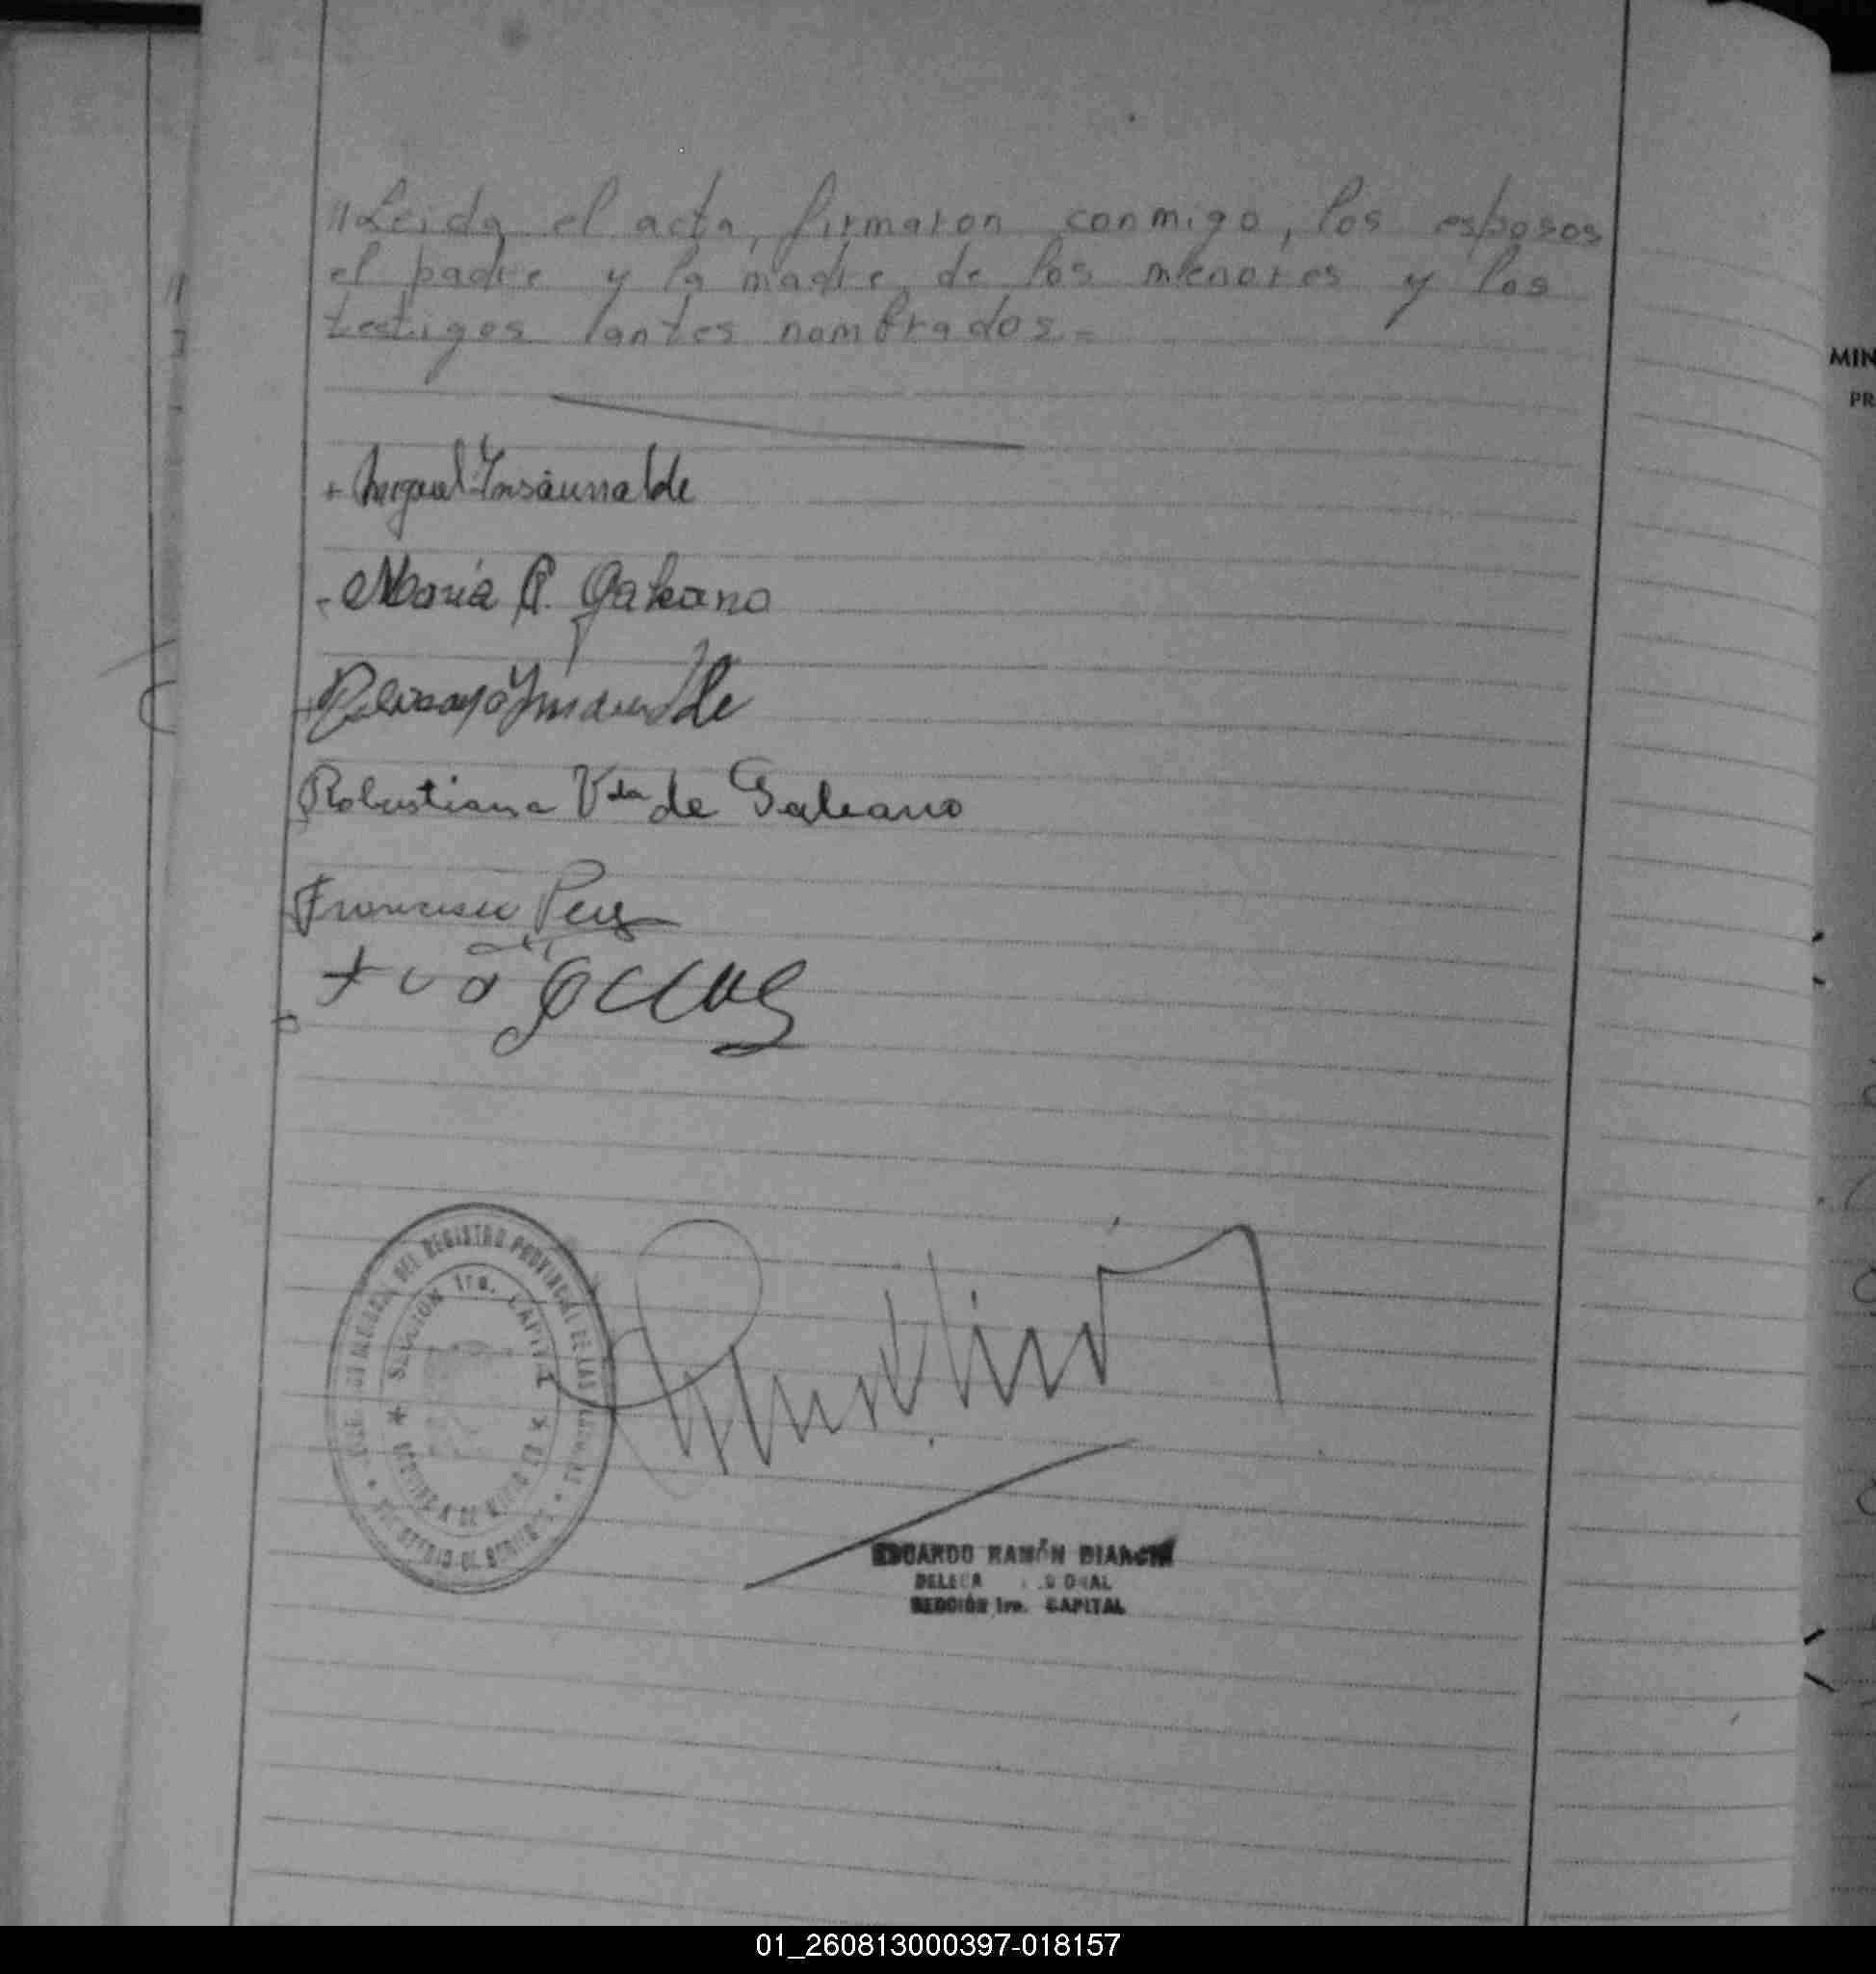 "Leida el acta, firmaron conmigo, los esposos
el padre y la madre de los menores y los
testigos antes nombrados.=
+ Miguel Insaurralde
- Maria R. Galeano
Insaurralde
Robustiana Vda de Galeano
Francisco Perez
DEL REGISTRO PROVINCIAL DE LAS PERSONAS
SECCIÓN 1ra. CAPITAL
MINISTERIO DE GOBIERNO
EDUARDO RAMÓN BIANCHI
SECCIÓN 1ra. CAPITAL
MIN
PR
01_260813000397-018157